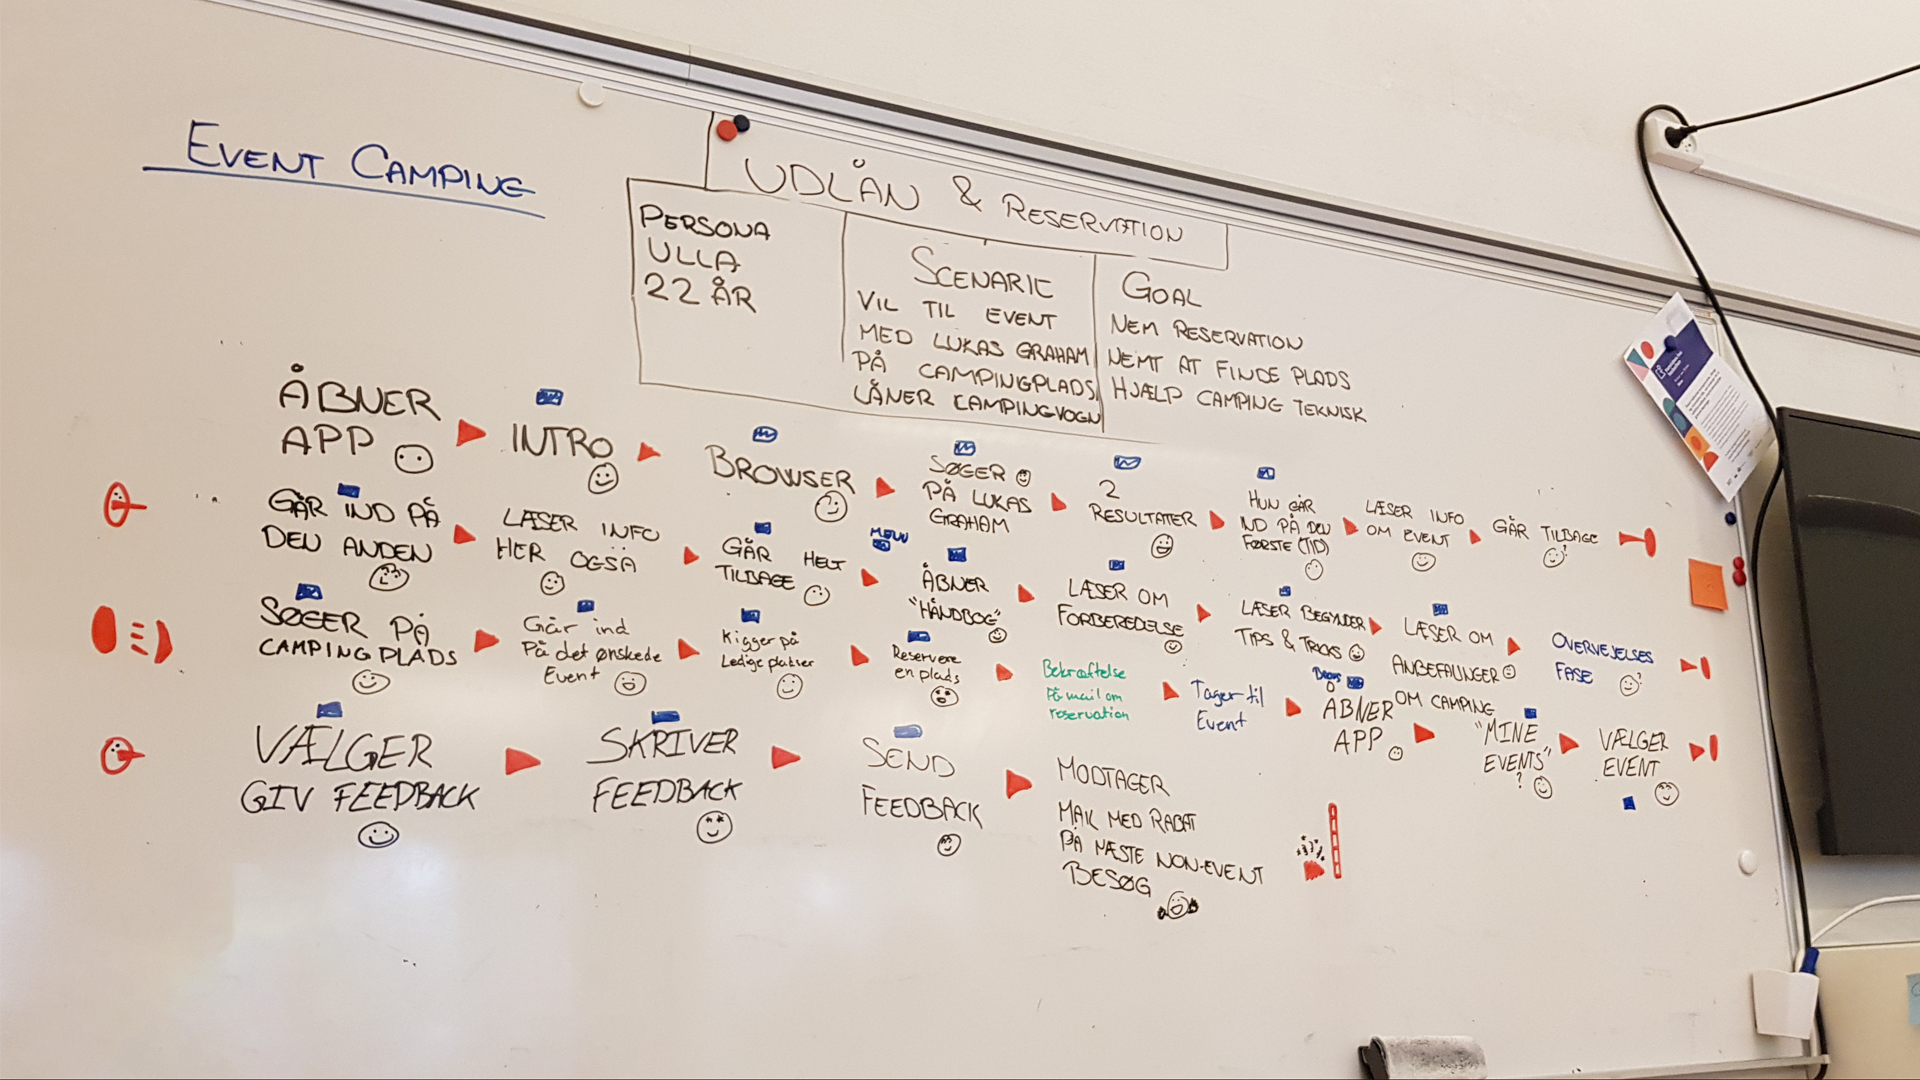 EVENT CAMPING
UDLÅN & RESERVATION
PERSONA
ULLA
22 ÅR
SCENARIE
VIL TIL EVENT
MED LUKAS GRAHAM
PÅ CAMPINGPLADS
LÅNER CAMPINGVOGN
GOAL
NEM RESERVATION
NEMT AT FINDE PLADS
HJÆLP CAMPING TEKNISK
ÅBNER
APP
INTRO
BROWSER
SØGER
PÅ LUKAS
GRAHAM
2
RESULTATER
HUN GÅR
IND PÅ DEN
FØRSTE (TID)
LÆSER INFO
OM EVENT
GÅR TILBAGE
GÅR IND PÅ
DEN ANDEN
LÆSER INFO
HER OGSÅ
GÅR HELT
TILBAGE
MENU
ÅBNER
"HÅNDBOG"
LÆSER OM
FORBEREDELSE
LÆSER BEGYNDER
TIPS & TRICKS
LÆSER OM
ANBEFALINGER
OM CAMPING
OVERVEJELSES
FASE
SØGER PÅ
CAMPINGPLADS
Går ind
På det ønskede
Event
Kigger på
Ledige pladser
Reservere
en plads
Bekræftelse
På mail om
reservation
Tager til
Event
ÅBNER
APP
"MINE
EVENTS"
?
VÆLGER
EVENT
VÆLGER
GIV FEEDBACK
SKRIVER
FEEDBACK
SEND
FEEDBACK
MODTAGER
MAIL MED RABAT
PÅ NÆSTE NON-EVENT
BESØG